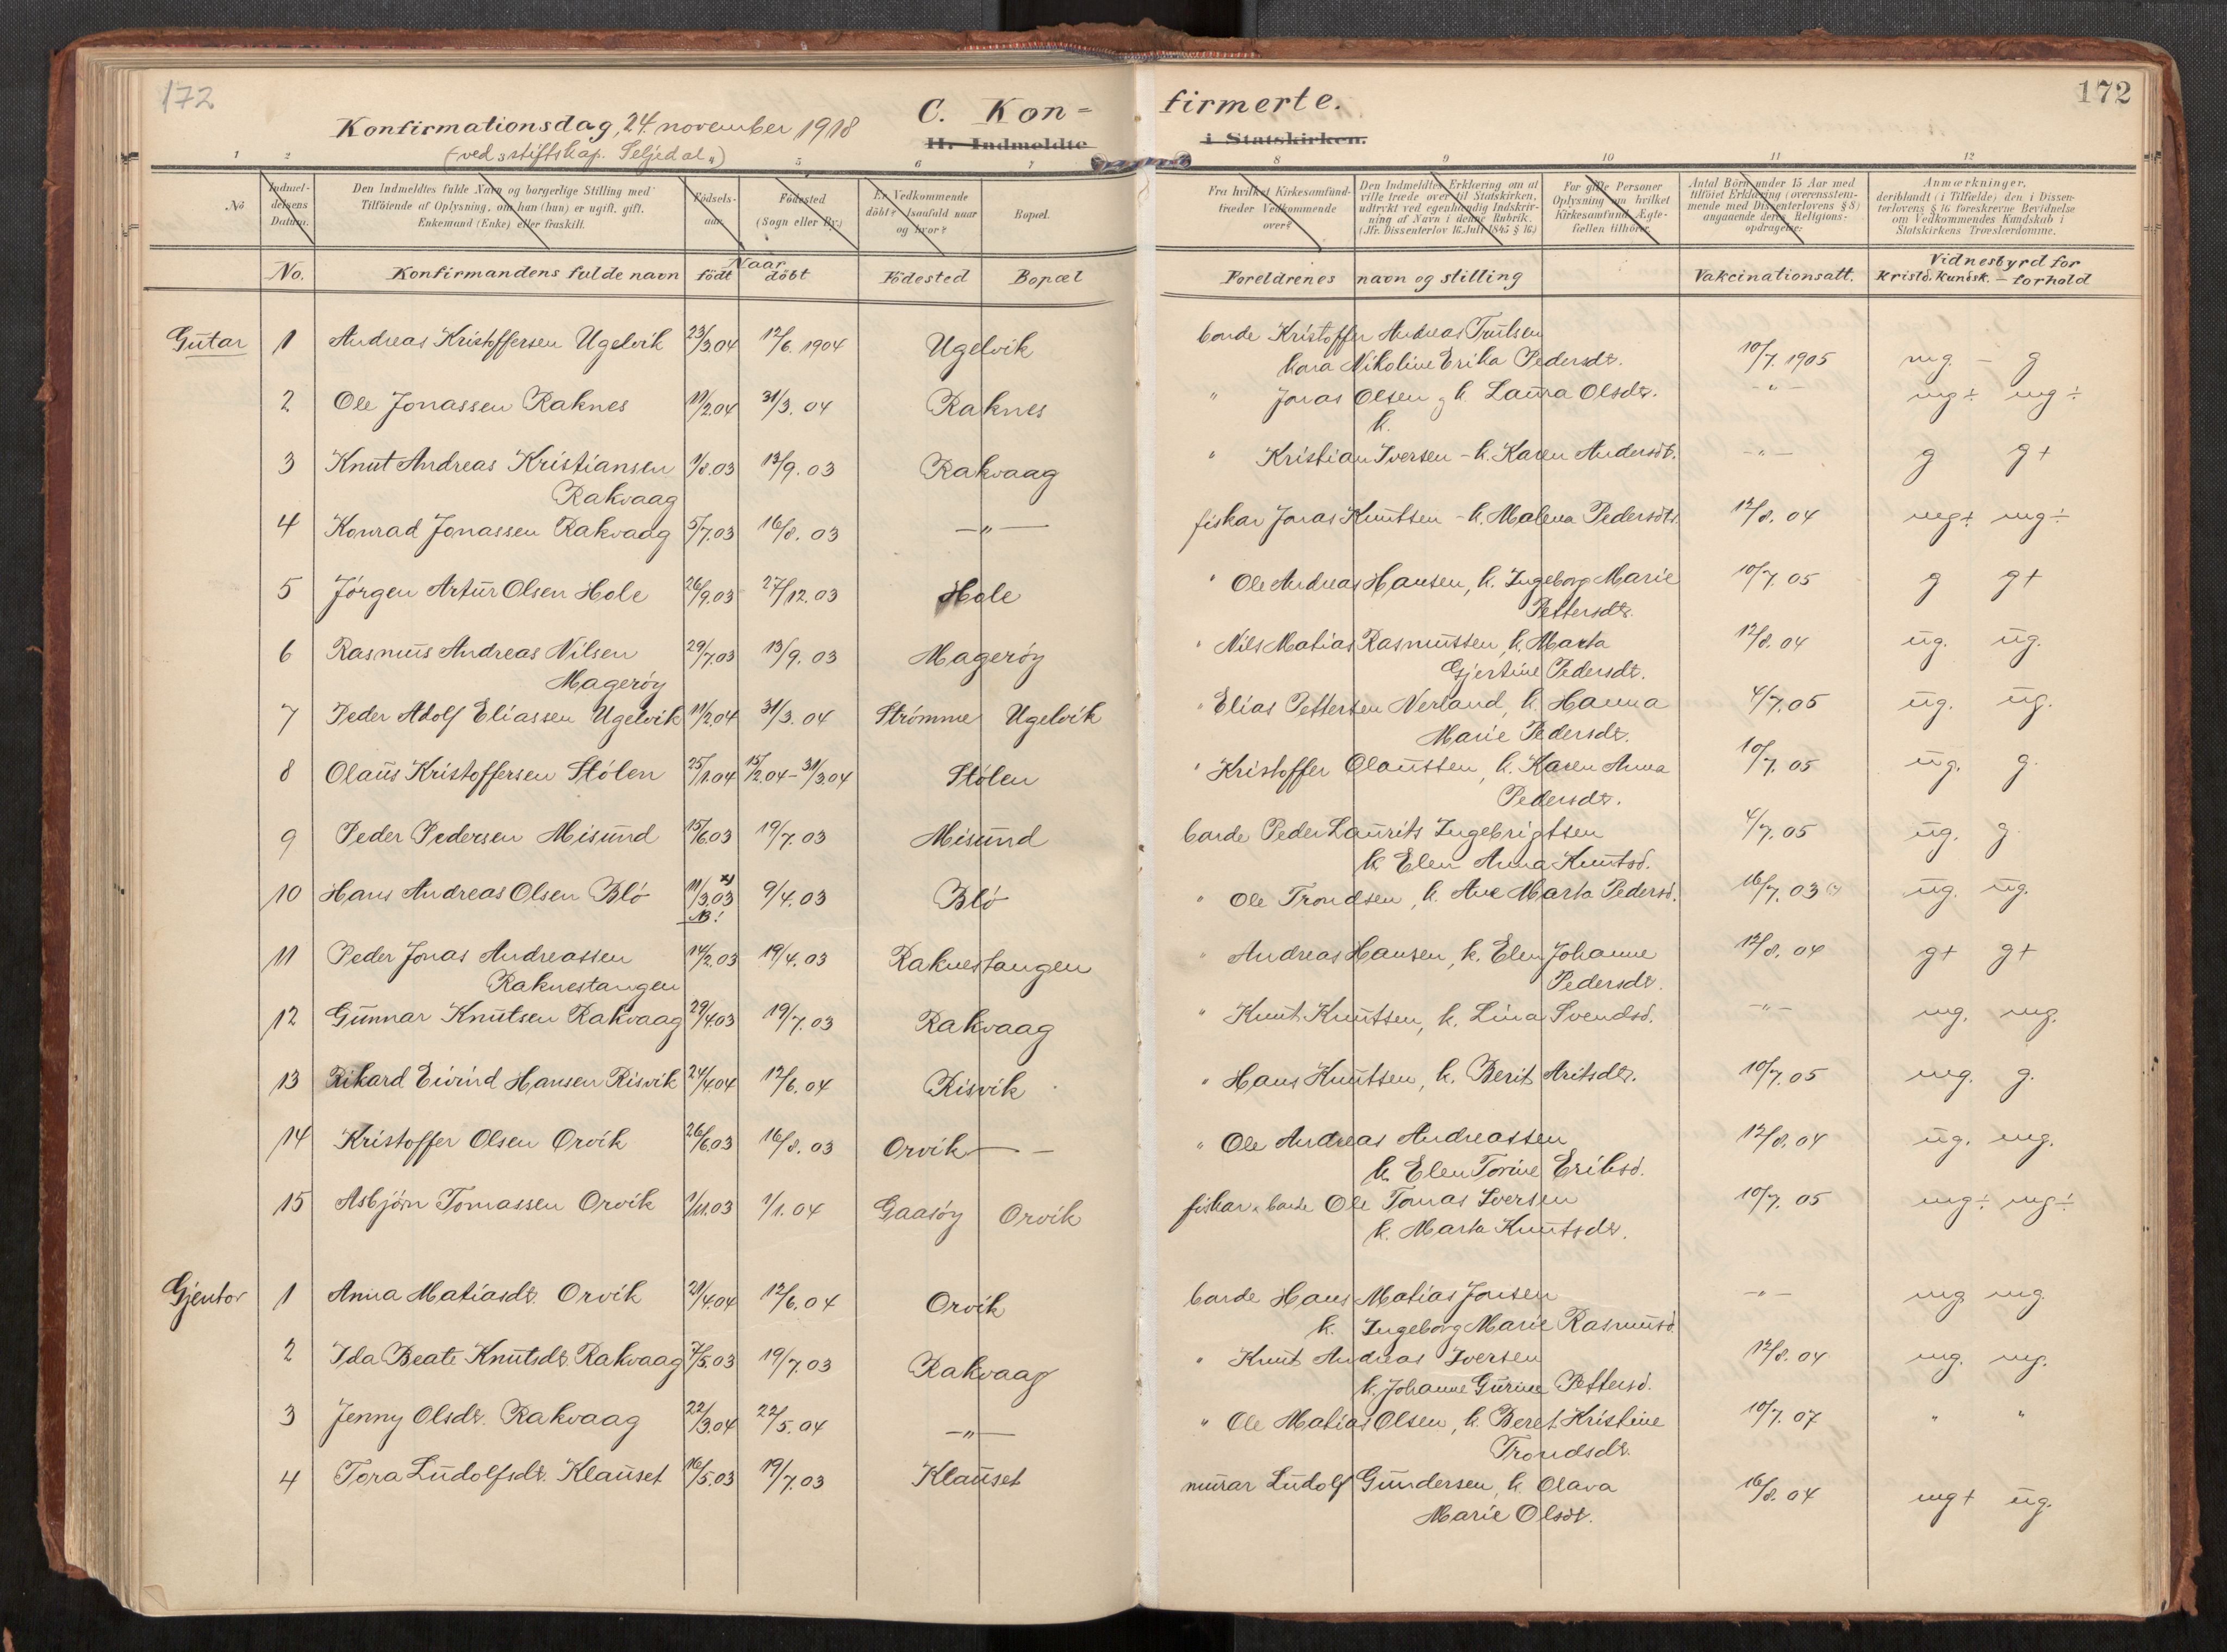 172
172
C. Kon-
firmerte.
Konfirmationsdag, 24. november 1918
(ved "stiftskap. Seljedal")
H. Indmeldte
i Statskirken.
1 2 5 6 7 8 9 10 11 12
No Indmel-delsens Datum. Den Indmeldtes fulde Navn og borgerlige Stilling med Tilføiende af Oplysning, om han (hun) er ugift, gift, Enkemand (Enke) eller fraskilt. Fødsels-aar. Fødested (Sogn eller By.) Er Vedkommende døbt? Isaafald naar og hvor? Bopæl.
Fra hvilket Kirkesamfund træder Vedkommende over? Den Indmeldtes Erklæring om at ville træde over til Statskirken, udtrykt ved egenhændig Indskrivning af Navn i denne Rubrik. (Jfr. Dissenterlov 16 Juli 1845 § 16.) For gifte Personer Oplysning om hvilket Kirkesamfund Ægtefællen tilhører. Antal Børn under 15 Aar med tilføiet Erklæring (overensstemmende med Dissenterlovens § 8) angaaende deres Religionsopdragelse. Anmærkninger, deriblandt (i Tilfælde) den i Dissenterlovens § 16 foreskrevne Bevidnelse om Vedkommendes Kundskab i Statskirkens Troeslærdomme.
No. Konfirmandens fulde navn Naar født døbt Födested Bopæl
Foreldrenes navn og stilling Vakcinationsatt. Vidnesbyrd for kristd. kundsk. - forhold
Gutar 1 Andreas Kristoffersen Ugelvik 23/3.04 12/6. 1904 Ugelvik bonde Kristoffer Andreas Trulsen
kona Nikoline Erika Pedersdt. 10/7. 1905 mg. - g
2 Ole Jonassen Raknes 11/2.04 31/3. 04 Raknes " Jonas Olsen, k. Laura Olsdt. -"- mg÷ mg÷
k.
3 Knut Andreas Kristiansen 1/8.03 13/9. 03 Rakvaag " Kristian Iversen - k. Karen Andersdt. -"- g g+
Rakvaag
4 Konrad Jonassen Rakvaag 5/7.03 16/8. 03 -"- fiskar Jonas Knutsen - k. Malena Pedersdt. 12/8. 04 mg÷ mg÷
5 Jörgen Artur Olsen Hole 26/9.03 27/12.03 Hole " Ole Andreas Hansen, k. Ingeborg Marie 10/7. 05 g g+
Pettersdt.
6 Rasmus Andreas Nilsen 29/7.03 13/9. 03 Magerøy " Nils Matias Rasmussen, k. Marta 12/8. 04 ug. ug.
Magerøy Gjertine Pedersdt.
7 Peder Adolf Eliassen Ugelvik 11/2.04 31/3. 04 Strömme Ugelvik " Elias Pettersen Nerland, k. Hanna 4/7.05 ug. ug.
Marie Pedersdt.
8 Olaus Kristoffersen Stölen 25/1.04 15/2.04-31/3.04 Stölen " Kristoffer Olaussen, k. Karen Anna 10/7. 05 ug. g.
Pedersdt.
9 Peder Pedersen Misund 15/6.03 19/7. 03 Misund bonde Peder Laurits Ingebrigtsen 4/7. 05 ug. g.
k Elen Anna Knutsd.
10 Hans Andreas Olsen Blö 11/3.03 x) 9/4. 03 Blö " Ole Trondsen, k. Ane Marta Pedersd. 16/7. 03 ug. ug.
NB!
11 Peder Jonas Andreassen 14/2.03 19/4.03 Raknestangen " Andreas Hansen, k. Elen Johanne 12/8. 04 g+ g+
Raknestangen Pedersdt.
12 Gunnar Knutsen Rakvaag 29/4.03 19/7. 03 Rakvaag " Knut Knutsen, k. Lina Svendsd. -"- mg. mg.
13 Rikard Eivind Hansen Risvik 24/4.04 12/6. 04 Risvik " Hans Knutsen, k. Berit Aritsdt. 10/7. 05 mg. g.
14 Kristoffer Olsen Orvik 26/6.03 16/8. 03 Orvik - - " Ole Andreas Andreassen 12/8. 04 ug. mg.
k. Elen Torine Eriksd.
15 Asbjörn Tomassen Orvik 1/11.03 1/1. 04 Gaasöy Orvik fiskar, bonde Ole Tomas Iversen 10/7. 05 mg÷ mg÷
k. Marta Knutsdt.
Gjentor 1 Anna Matiasdt. Orvik 21/4.04 12/6. 04 Orvik bonde Hans Matias Jonsen -"- mg mg.
k. Ingeborg Marie Rasmusd.
2 Ida Beate Knutsdt. Rakvaag 7/5.03 19/7.03 Rakvaag " Knut Andreas Iversen 12/8. 04 mg. mg.
k. Johanne Gurine Pettersd.
3 Jenny Olsdt. Rakvaag 22/3.04 22/5. 04 -"- " Ole Matias Olsen, k. Beret Kristine 10/7. 07 " "
Trondsdt.
4 Tora Ludolfsdt. Klauset 16/5.03 19/7.03 Klauset murar Ludolf Gundersen, k. Olava 16/8. 04 mg+ ug.
Marie Olsdt.